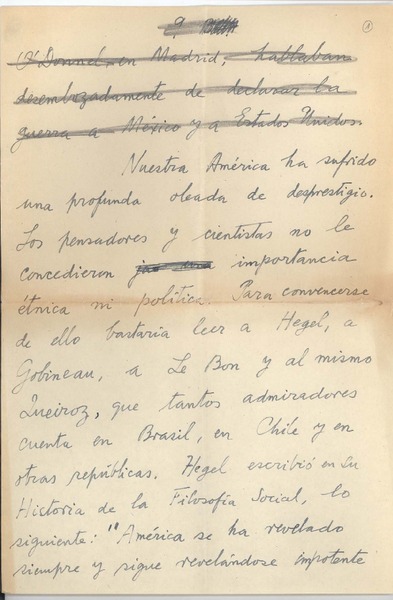 9
O'Donnel, en Madrid, hablaban
desembozadamente de declarar la
guerra a México y a Estados Unidos.
Nuestra América ha sufrido
una profunda oleada de desprestigio.
Los pensadores y cientistas no le
concedieron importancia
étnica ni política. Para convencerse
de ello bastaría leer a Hegel, a
Gobineau, a Le Bon y al mismo
Queiroz, que tantos admiradores
cuenta en Brasil, en Chile y en
otras repúblicas. Hegel escribió en su
Historia de la Filosofía Social, lo
siguiente: "América se ha revelado
siempre y sigue revelándose impotente